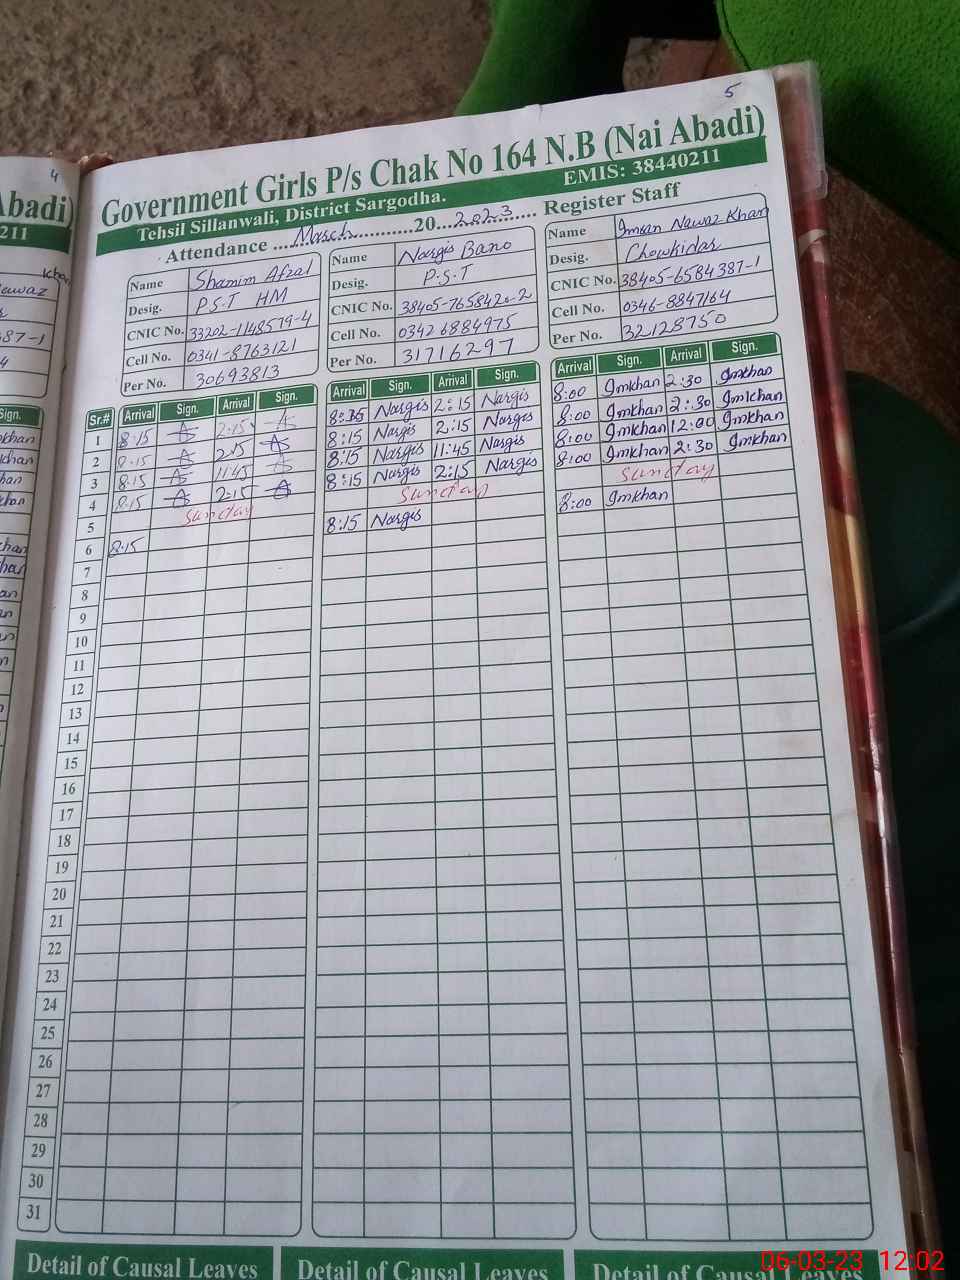 5
4
Government Girls P/s Chak No 164 N.B (Nai Abadi)
Tehsil Sillanwali, District Sargodha. EMIS: 38440211
Attendance ... March ... 20...2023... Register Staff
Name Shamim Afzal
Desig. P.S.T HM
CNIC No. 33202-1148579-4
Cell No. 0341-8763121
Per No. 30693813
Name Nargis Bano
Desig. P.S.T
CNIC No. 38405-7658420-2
Cell No. 03426884975
Per No. 31716297
Name Imran Nawaz Khan
Desig. Chowkidar
CNIC No. 38405-6584387-1
Cell No. 0346-8847164
Per No. 32128750
Sr.# Arrival Sign. Arrival Sign. Arrival Sign. Arrival Sign. Arrival Sign. Arrival Sign.
1 8:15 2:15 8:35 Nargis 2:15 Nargis 8:00 Imkhan 2:30 Imkhan
2 8:15 2:15 8:15 Nargis 2:15 Nargis 8:00 Imkhan 2:30 Imkhan
3 8:15 11:45 8:15 Nargis 11:45 Nargis 8:00 Imkhan 12:00 Imkhan
4 8:15 2:15 8:15 Nargis 2:15 Nargis 8:00 Imkhan 2:30 Imkhan
5 Sunday Sunday Sunday
6 8:15 8:15 Nargis 8:00 Imkhan
7
8
9
10
11
12
13
14
15
16
17
18
19
20
21
22
23
24
25
26
27
28
29
30
31
Detail of Causal Leaves Detail of Causal Leaves Detail of Causal Leaves
06-03-23 12:02